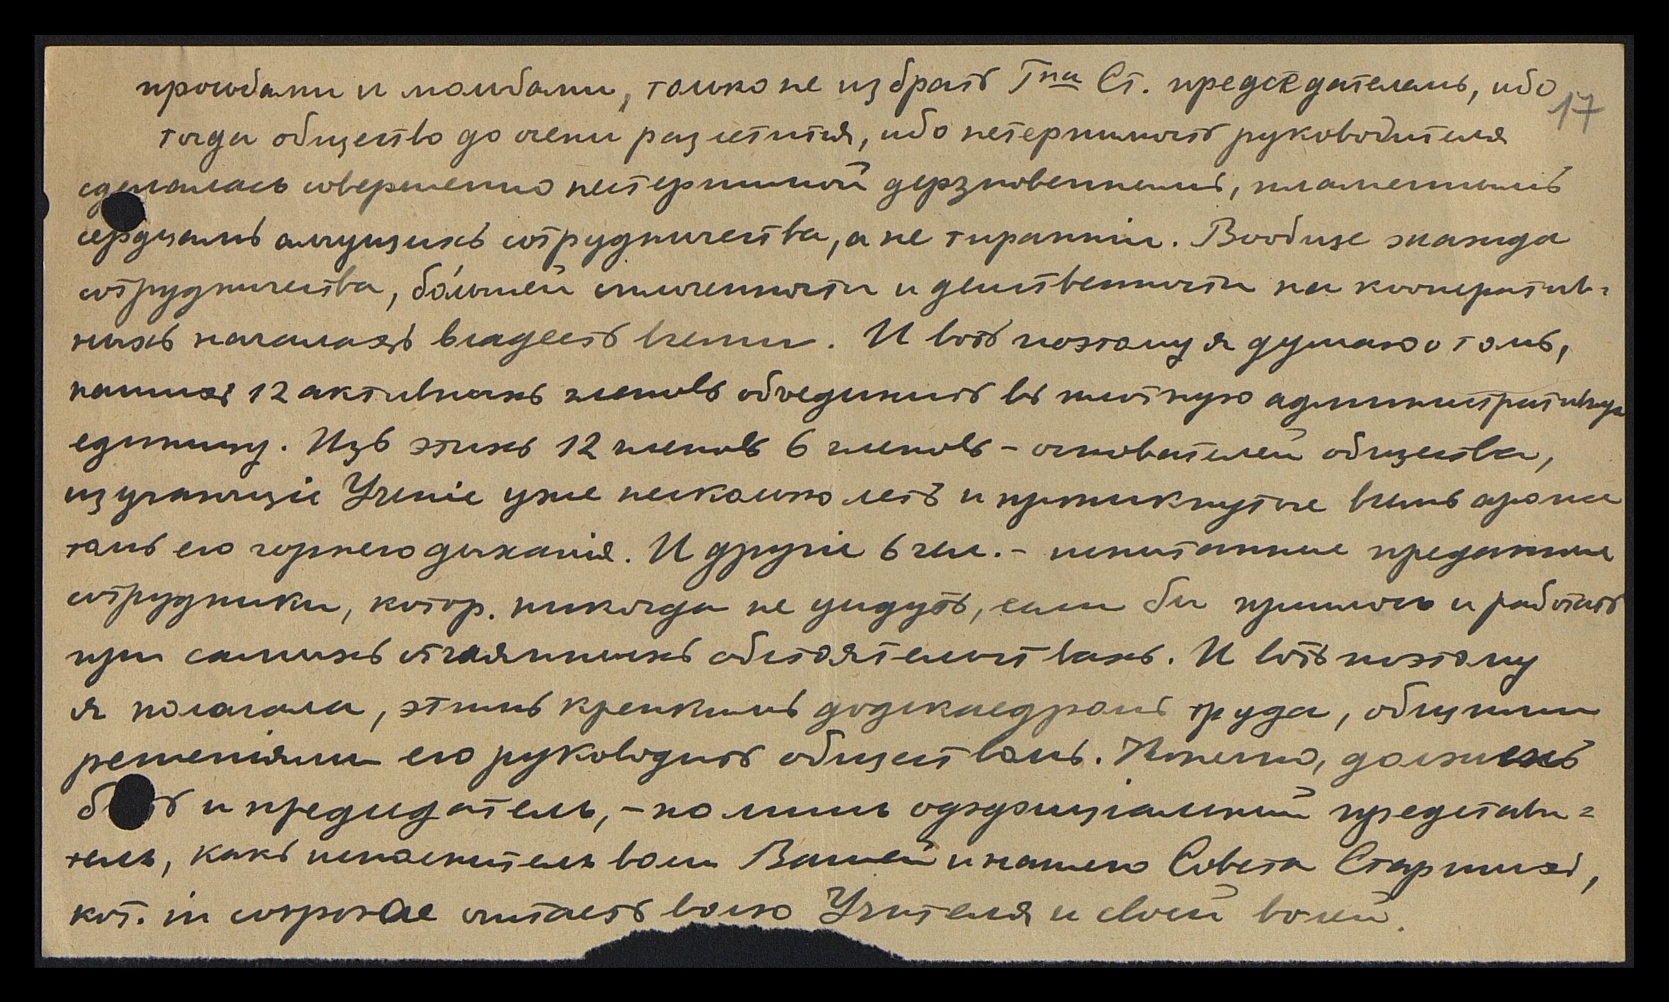 просьбами и мольбами, только не избрать Гна Ст. председателемъ, ибо
17
тогда общество до осени разлетится, ибо нетерпимость руководителя
сделалась совершенно нестерпимой дерзновеннымъ, пламеннымъ
сердцамъ алчущихъ сотрудничества, а не тираніи. Вообще жажда
сотрудничества, бо́льшей сплоченности и действенности на кооператив=
ныхъ началахъ владеетъ всеми. И вотъ поэтому я думаю о томъ,
нашихъ 12 активныхъ членовъ объединить въ плотную административную
единицу. Изъ этихъ 12 членовъ 6 членовъ – основателей общества,
изучающіе Ученіе уже несколько летъ и проникнутые всемъ арома
томъ его горнего дыханія. И другіе 6 чел. – испытанные преданные
сотрудники, котор. никогда не уйдутъ, если бы пришлось и работать
при самыхъ отчаянныхъ обстоятельствахъ. И вотъ поэтому
я полагала, этимъ крепкимъ додекаедромъ труда, общими
решеніями его руководить обществомъ. Конечно, долженъ
быть и председатель, – но лишь оффиціальный представи=
тель, какъ исполнитель воли Вашей и нашего Совета Старшихъ,
кот. in corpore считаетъ волю Учителя и своей волей.